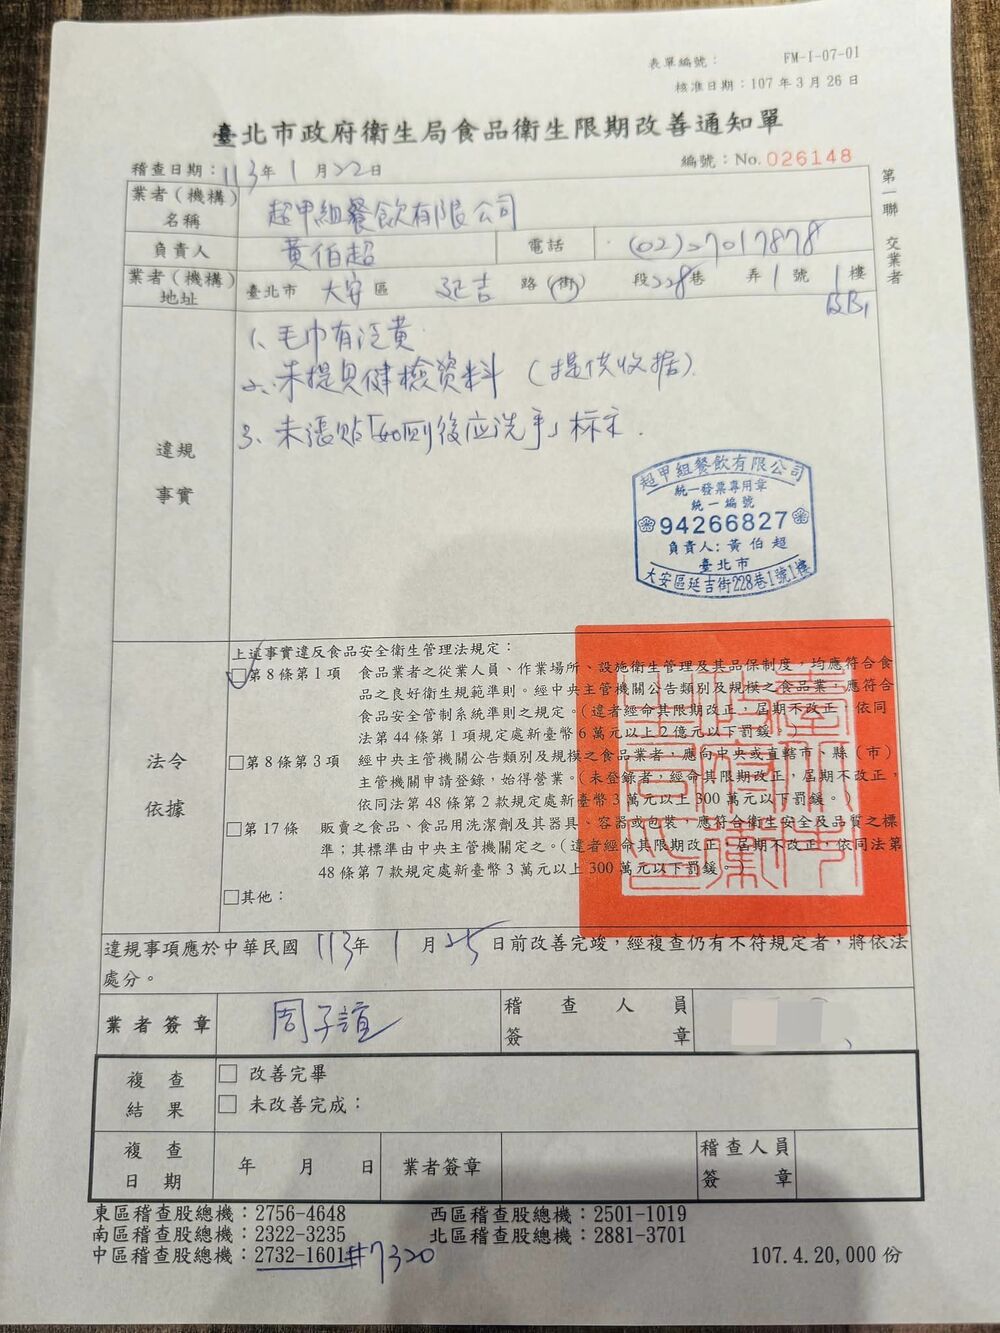 表單編號： FM-I-07-01
核准日期：107 年 3 月 26 日
臺北市政府衛生局食品衛生限期改善通知單
稽查日期：113年 1 月22日 編號：No. 026148
第一聯 交業者
業者（機構）名稱 超甲組餐飲有限公司
負責人 黃伯超 電話 (02)27017878
業者（機構）地址 臺北市 大安 區 延吉 路（街） 段228巷 弄1號 1樓及B1
違規事實
1、毛巾有泛黃.
2、未提具健檢資料（提供收据）.
3、未張貼「如廁後应洗手」标示.
超甲組餐飲有限公司
統一發票專用章
統一編號
94266827
負責人：黃伯超
臺北市
大安區延吉街228巷1號1樓
法令依據
上述事實違反食品安全衛生管理法規定：
□第 8 條第 1 項 食品業者之從業人員、作業場所、設施衛生管理及其品保制度，均應符合食
品之良好衛生規範準則。經中央主管機關公告類別及規模之食品業，應符合
食品安全管制系統準則之規定。（違者經命其限期改正，屆期不改正，依同
法第 44 條第 1 項規定處新臺幣 6 萬元以上 2 億元以下罰鍰。）
□第 8 條第 3 項 經中央主管機關公告類別及規模之食品業者，應向中央或直轄市、縣（市）
主管機關申請登錄，始得營業。（未登錄者，經命其限期改正，屆期不改正，
依同法第 48 條第 2 款規定處新臺幣 3 萬元以上 300 萬元以下罰鍰。）
□第 17 條 販賣之食品、食品用洗潔劑及其器具、容器或包裝，應符合衛生安全及品質之標
準；其標準由中央主管機關定之。（違者經命其限期改正，屆期不改正，依同法第
48 條第 7 款規定處新臺幣 3 萬元以上 300 萬元以下罰鍰。
□其他：
違規事項應於中華民國 113年 1 月 25 日前改善完竣，經複查仍有不符規定者，將依法
處分。
業者簽章 周子誼 稽查人員簽章
複查結果 □ 改善完畢
□ 未改善完成：
複查日期 年 月 日 業者簽章 稽查人員簽章
東區稽查股總機：2756-4648 西區稽查股總機：2501-1019
南區稽查股總機：2322-3235 北區稽查股總機：2881-3701
中區稽查股總機：2732-1601#7320 107.4.20,000 份